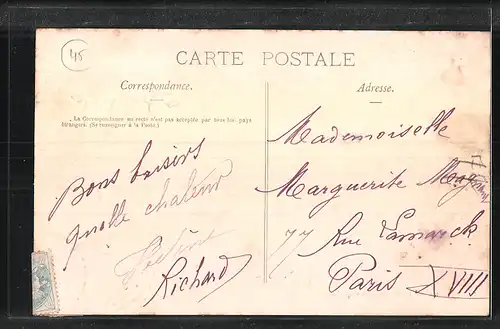 45
CARTE POSTALE
Correspondance.
Adresse.
La Correspondance au recto n'est pas acceptée par tous les pays
étrangers. (Se renseigner à la Poste.)
Bons baisers
quelle chaleur
Richard
Mademoiselle
Marguerite
77 Rue Lamarck
Paris XVIII